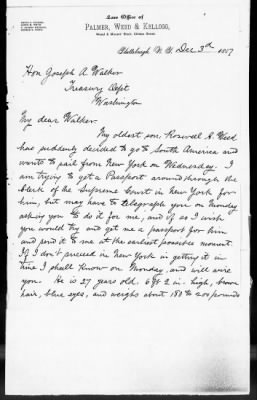 Law Office of
PALMER, WEED & KELLOGG,
Plattsburgh, N. Y. Dec 3rd 1887
Hon Joseph A Walker
Treasury Dept
Washington
My dear Walker
My oldest son, Roswell A. Weed
has suddenly decided to go to South America and
wants to sail from New York on Wednesday. I
am trying to get a Passport around through the
Clerk of the Supreme Court in New York for
him, but may have to telegraph you on Monday
asking you to do it for me, and if so I wish
you would try and get me a passport for him
and send it to me at the earliest possible moment.
If I don't succeed in New York in getting it in
time I shall know on Monday, and will wire
you. He is 27 years old. 6 ft 2 in. high, brown
hair, blue eyes, and weighs about 180 to 200 pounds